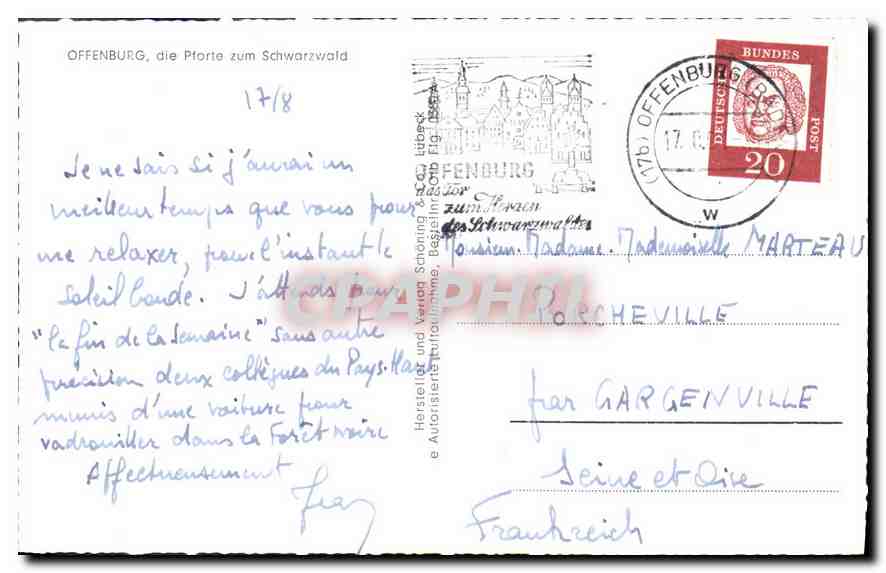 OFFENBURG, die Pforte zum Schwarzwald
17/8
Je ne sais si j'aurai un
meilleur temps que vous pour
me relaxer, pour l'instant le
soleil boude. J'attends pour
"la fin de la semaine" sans autre
précision deux collègues du Pays-Haut
munis d'une voiture pour
vadrouiller dans la Forêt noire
Affectueusement
Hersteller und Verlag Schöning & Co., Lübeck
Autorisierte Luftaufnahme, Bestellnr.
OFFENBURG
das Tor
zum Herzen
des Schwarzwaldes
(17b) OFFENBURG (BADEN)
17.
w
DEUTSCHE
BUNDES
POST
20
Monsieur. Madame. Mademoiselle MARTEAU
PORCHEVILLE
par GARGENVILLE
Seine et Oise
Frankreich
CPAPHIL